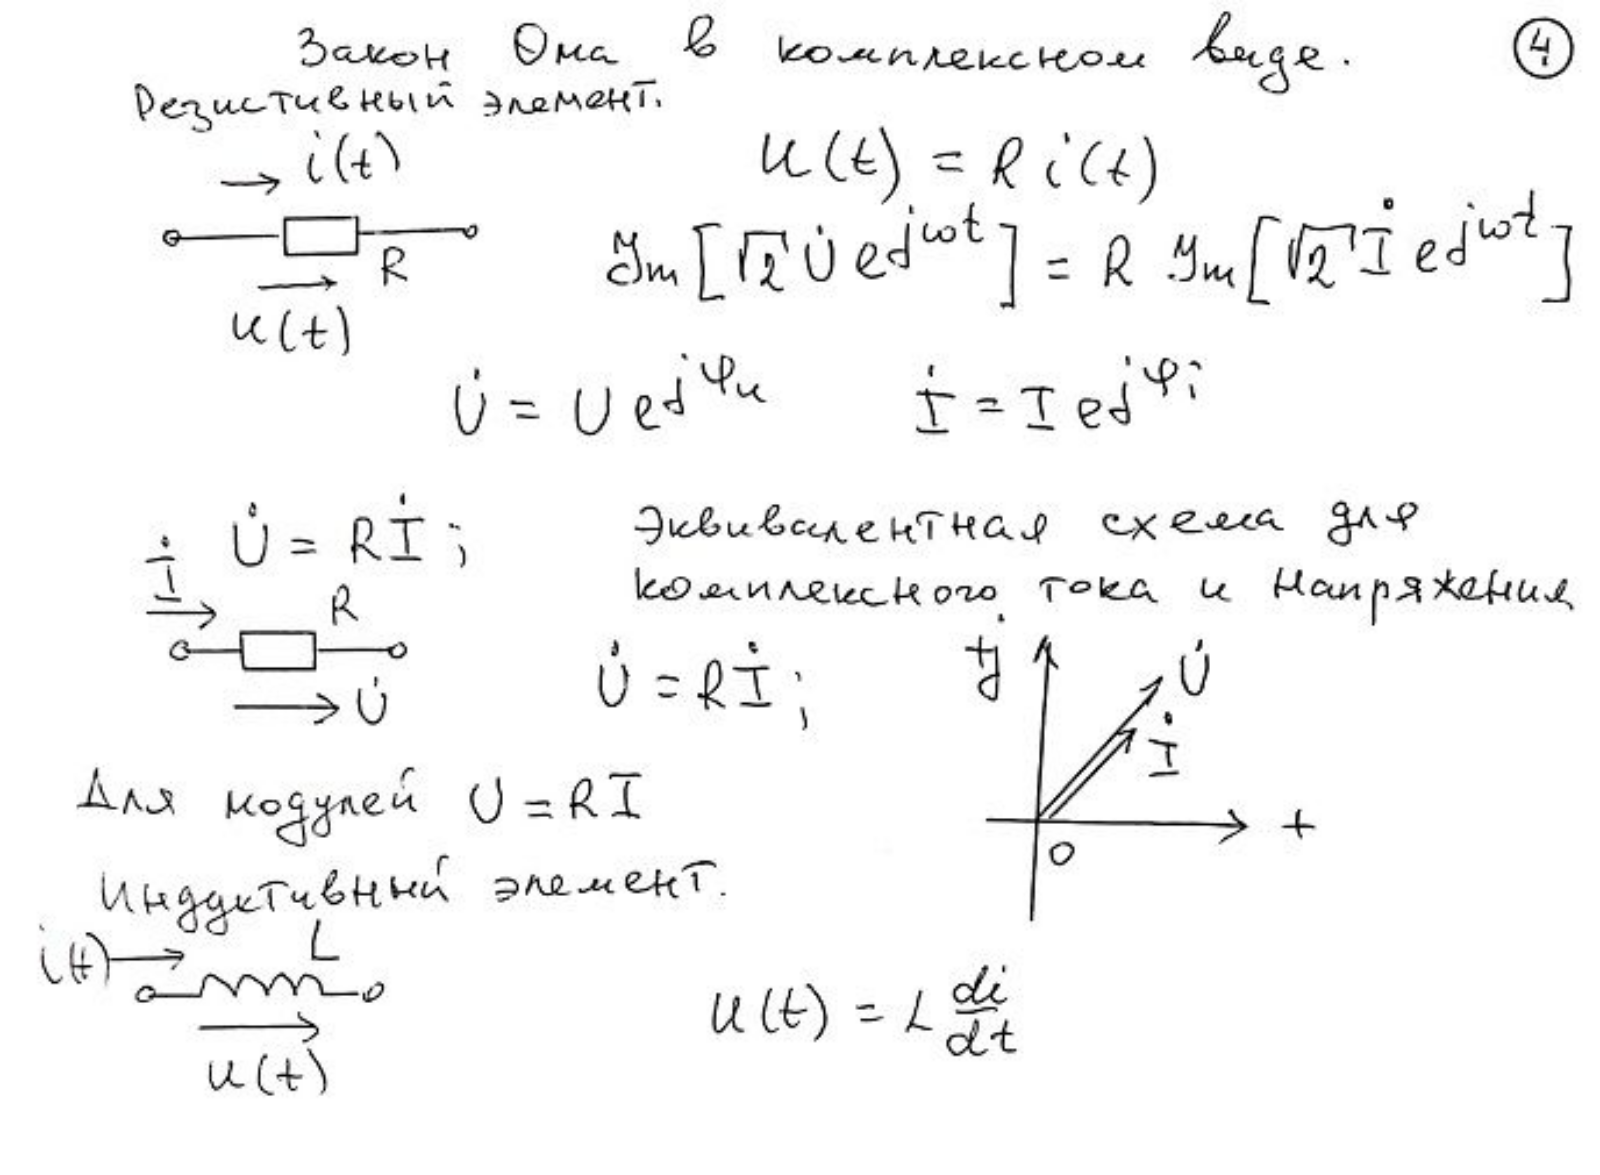 Закон Ома в комплексном виде. 4
Резистивный элемент.
i(t)
u(t) = R i(t)
R
Jm[√2 U̇ e^jωt] = R Jm[√2 İ e^jωt]
u(t)
U̇ = U e^jφu İ = I e^jφi
U̇ = Rİ ;
Эквивалентная схема для
комплексного тока и напряжения
İ
R
U̇
U̇ = Rİ ;
+j
U̇
İ
+
0
Для модулей U = RI
Индуктивный элемент.
i(t)
L
u(t)
u(t) = L di/dt